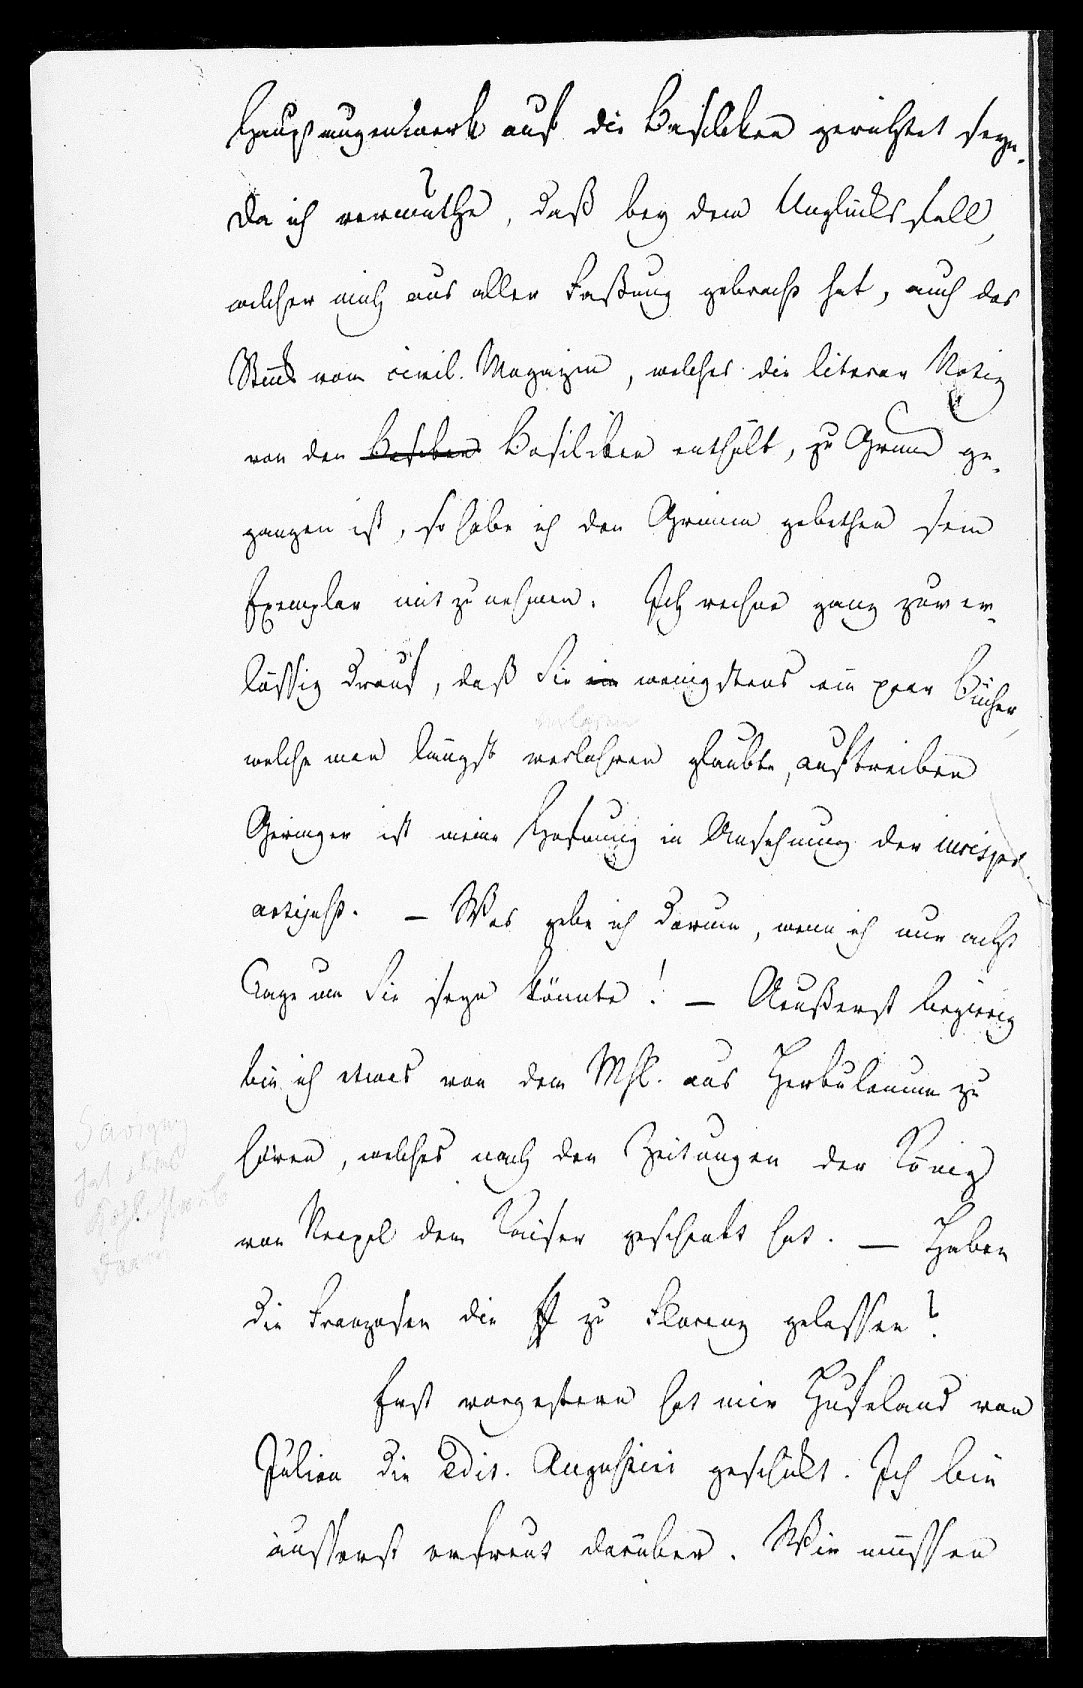 Hauptaugenmerk auf die Basiliken gerichtet seyn.
Da ich vermuthe, daß bey dem Unglücksfall,
welcher mich aus aller Faßung gebracht hat, auch das
Stück vom civil. Magazin, welches die literar Notiz
von den Basiliken Basiliken enthält, zu Grund ge-
gangen ist, so habe ich den Grimm gebethen sein
Exemplar mitzunehmen. Ich rechne ganz zuver-
lässig drauf, daß Sie ein wenigstens ein paar Bücher,
welche man längst verlohren glaubte, auftreiben
Geringer ist meine Hofnung in Ansehnung der iurispr.
antejust. – Was gebe ich darum, wenn ich nur acht
Tage um Sie seyn könnte! – Aeußerst begierig
bin ich etwas von dem Mst. aus Herkulanum zu
hören, welches nach den Zeitungen der König
von Neapel dem Kaiser geschenkt hat. – Haben
die Franzosen die ff zu Florenz gelassen?
Erst vorgestern hat mir Hufeland von
Julian die Edit. Augustini geschickt. Ich bin
äusserst erfreut darüber. Wir müssen
Savigny